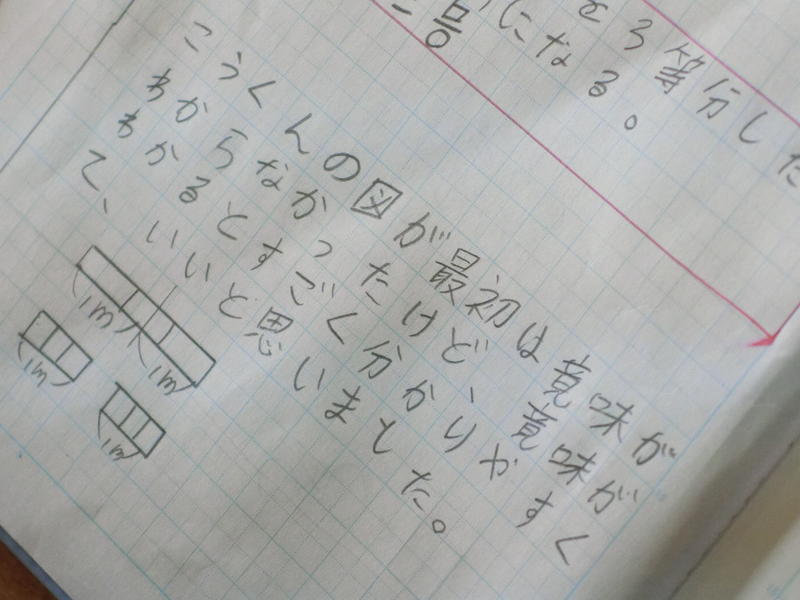 を3等分した
にになる。
号
こうくんの図が最初は意味が
わからなかったけど、意味が
わかるとすごく分かりやすく
て、いいと思いました。
1m
1m
1m
1m